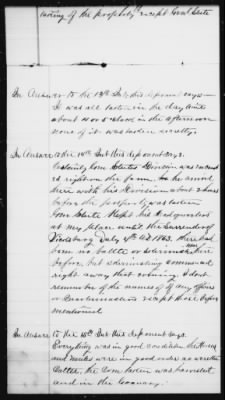 taking of the property except Govl State
In Answer to the 13th Int. this deponent says—
It was all taken in the day time
about 4 or 5 o'clock in the afternoon
none of it was taken secretly.
In Answer to the 14th Int this deponent says.
Certainly Genl Division was
ed right on the farm. he moved
here with his Division about 2 hours
before the property was taken
Genl Kept his Head quarters
at my place until the Surrender of
Vicksburg July 4th AD 1863. There had
been no battle or skirmishing
before but skirmishing commenced
right away that evening. I dont
remember of the names of if any officers
or Quartermasters except those before
mentioned
In Answer to the 15th Int this deponent says.
Everything was in good condition the Horses
and mules were in good order as were the
Cattle, the Corn taken was harvested
and in the